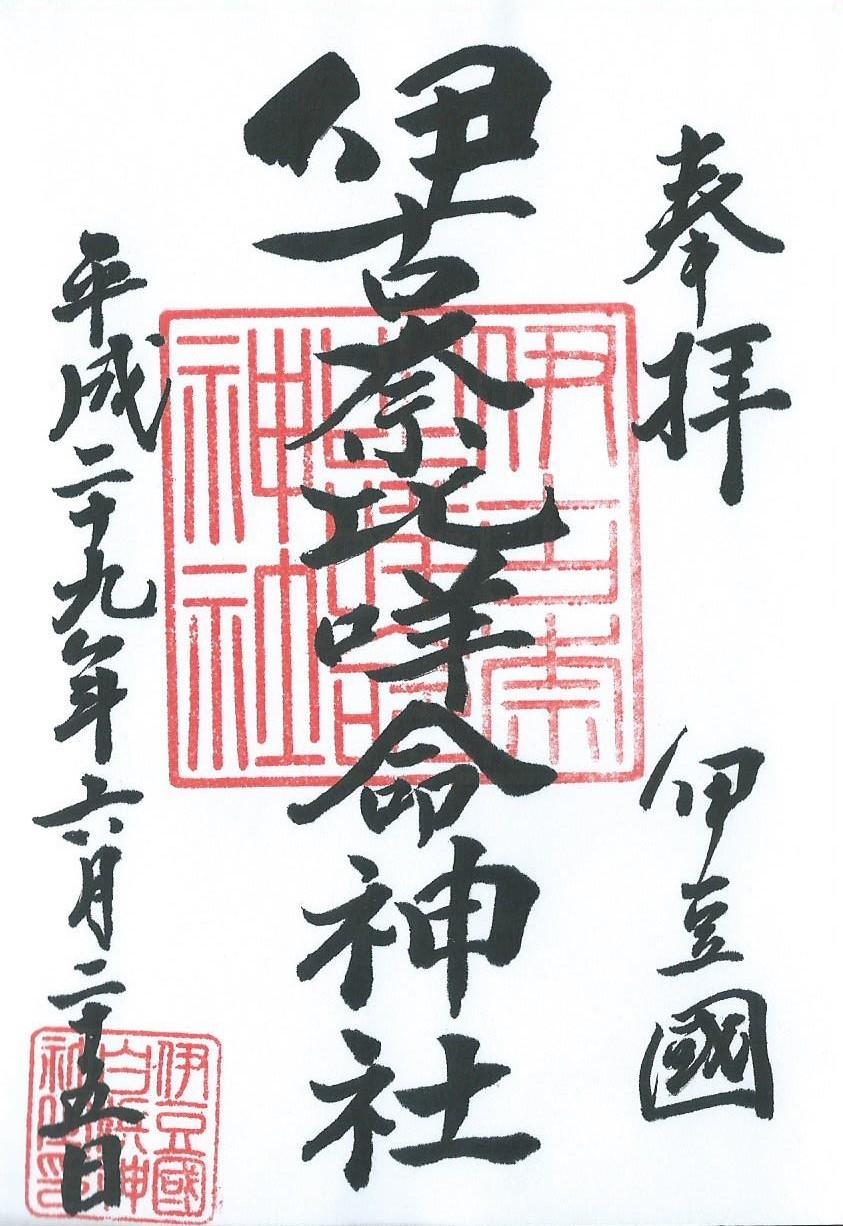 奉拝
伊豆國
伊古奈比咩命神社
平成二十九年六月二十五日
伊古奈
比咩命
神社
伊豆國
白浜神
社之印